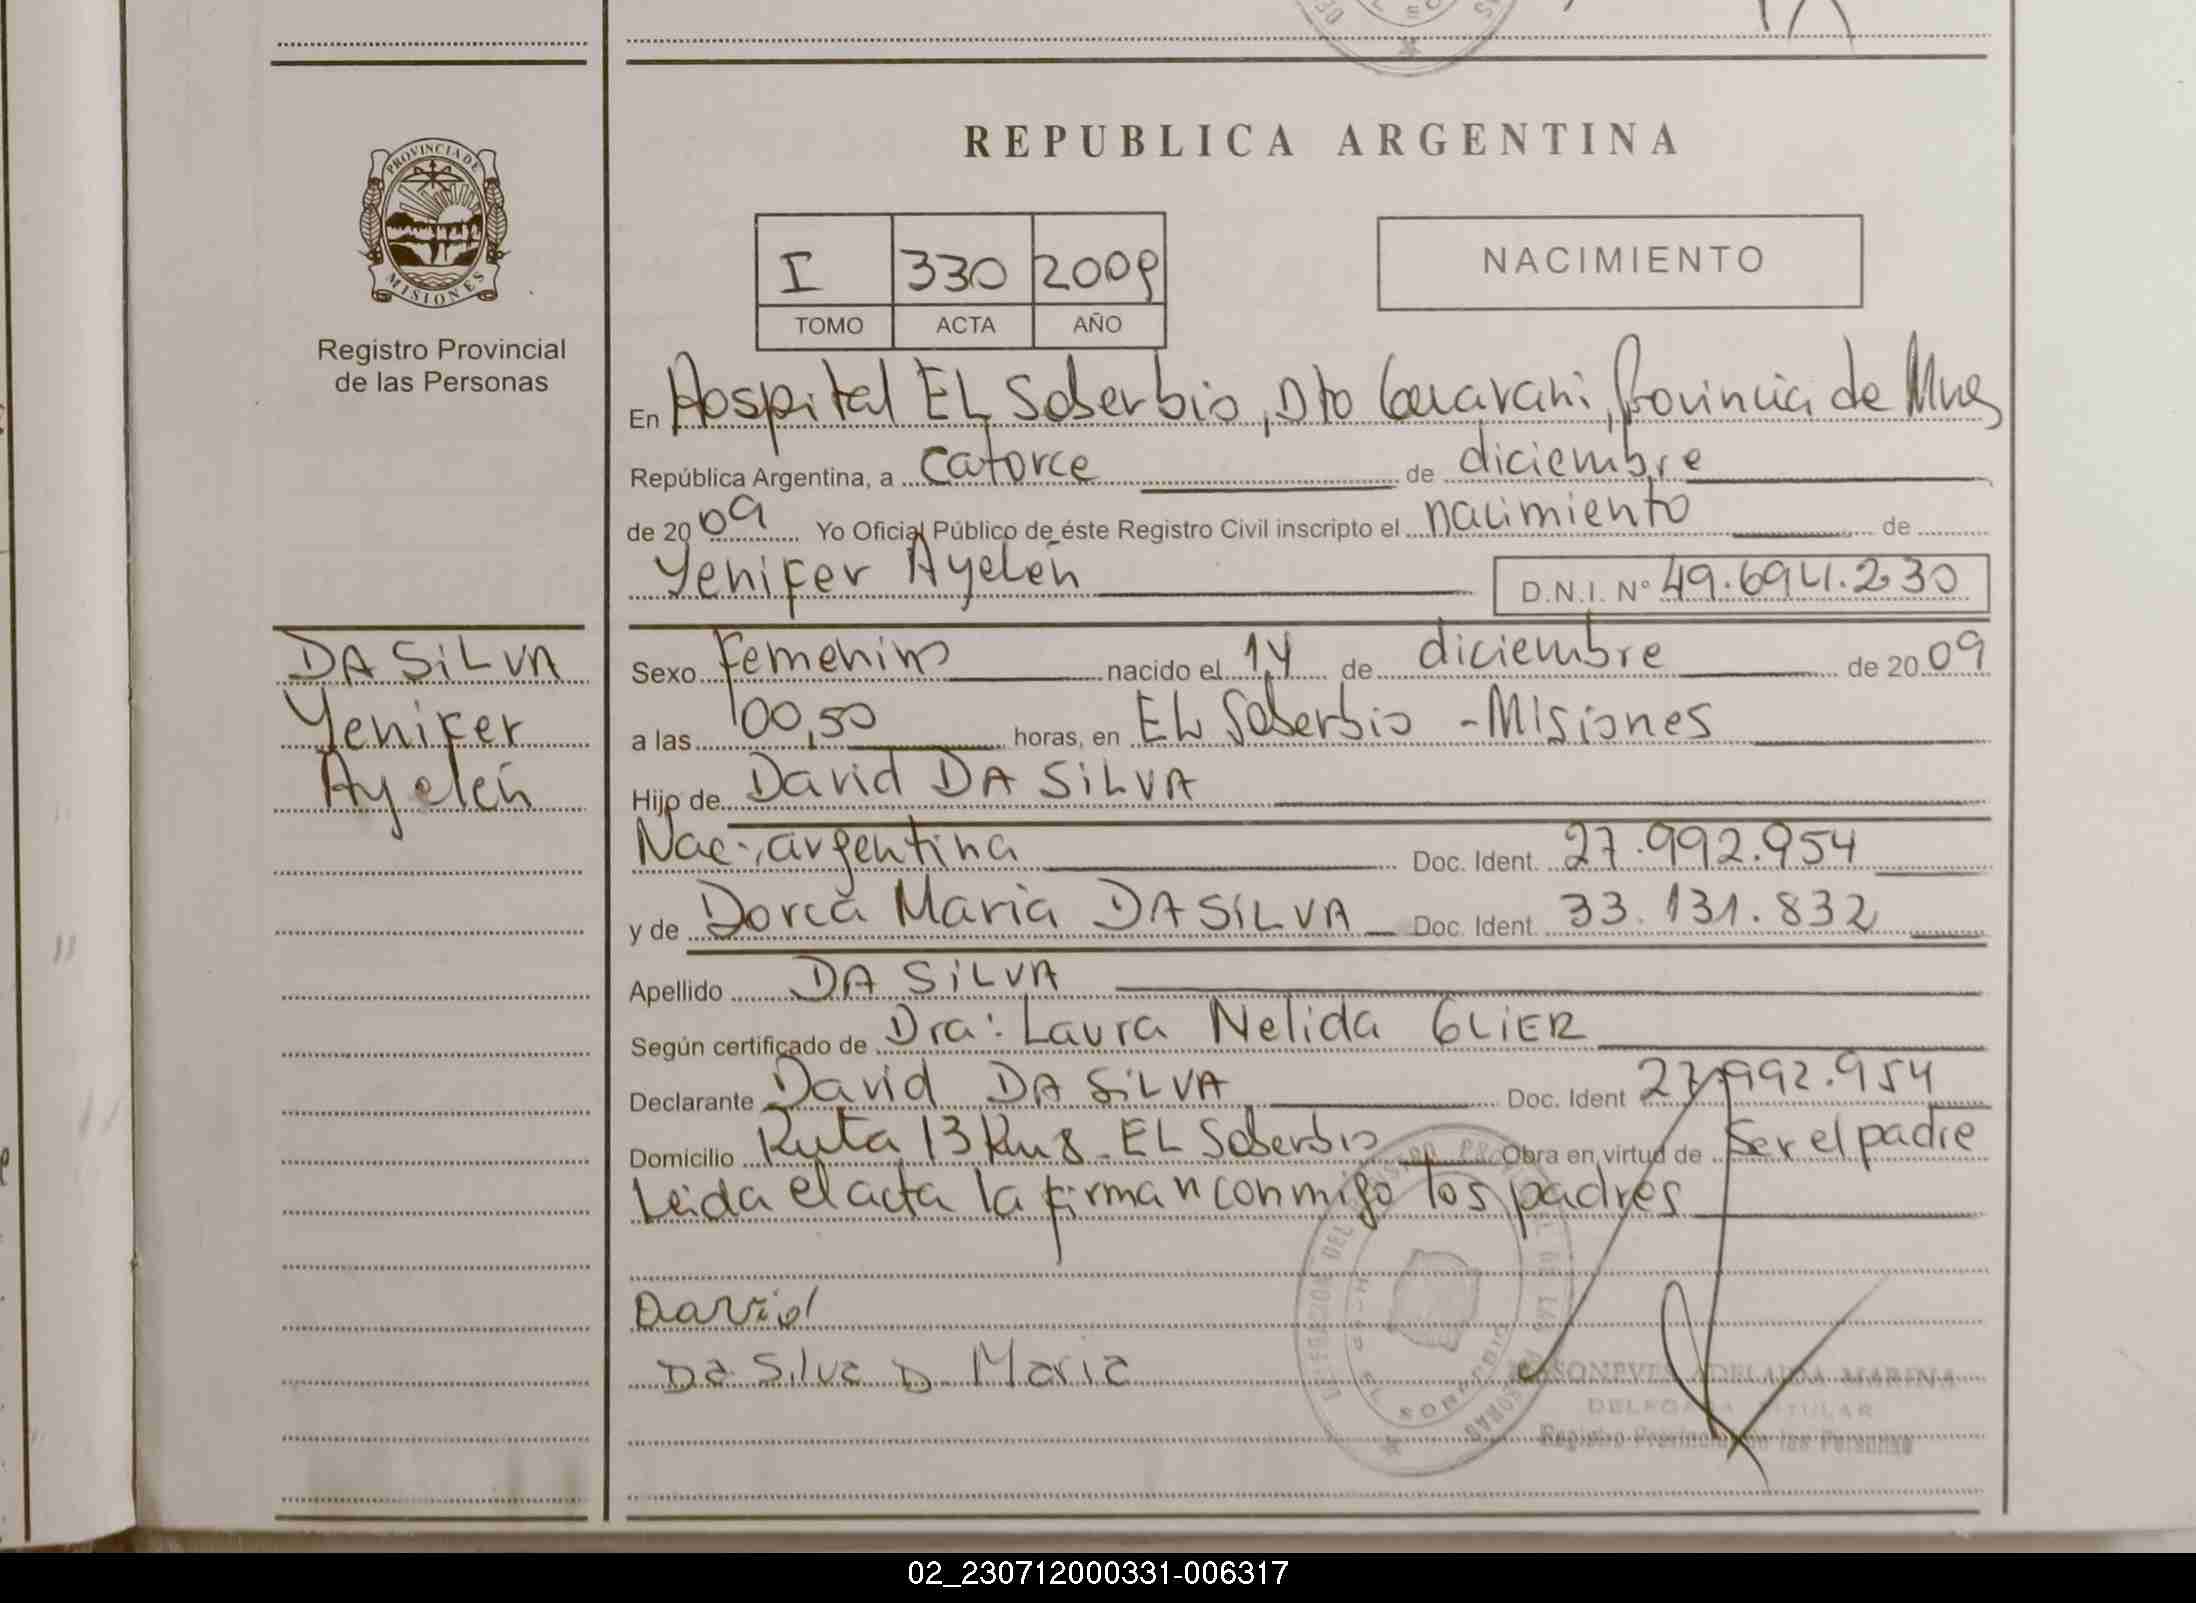 REPUBLICA ARGENTINA
PROVINCIA DE
MISIONES
Registro Provincial
de las Personas
I 330 2009
TOMO ACTA AÑO
NACIMIENTO
En Hospital EL Soberbio, Dto Guarani, Provincia de Mnes
República Argentina, a catorce de diciembre
de 2009 Yo Oficial Público de éste Registro Civil inscripto el nacimiento de
Yenifer Ayelén
D.N.I. Nº 49.694.230
DA SiLVA
Yenifer
Ayelén
Sexo Femenino nacido el 14 de diciembre de 2009
a las 00,50 horas, en EL Soberbio - Misiones
Hijo de David DA SiLVA
Nac. argentina Doc. Ident. 27.992.954
y de Dorca Maria DA SiLVA Doc. Ident 33.131.832
Apellido DA SiLVA
Según certificado de Dra: Laura Nelida GLiER
Declarante David DA SiLVA Doc. Ident 27.992.954
Domicilio Ruta 13 Km 8 - EL Soberbio Obra en virtud de Ser el padre
Leida el acta la firman conmigo los padres
David
Da Silva D. Maria
ADELAIDA MARINA
DELEGADA TITULAR
Registro Provincial de las Personas
02_230712000331-006317